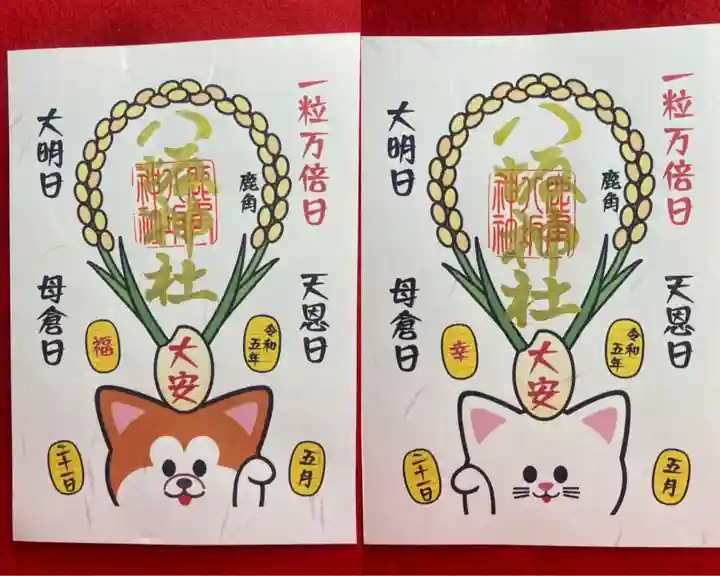 一粒万倍日
天恩日
鹿角
八坂神社
大明日
母倉日
大安
福
令和五年
五月
二十一日
一粒万倍日
天恩日
鹿角
八坂神社
大明日
母倉日
大安
幸
令和五年
五月
二十一日